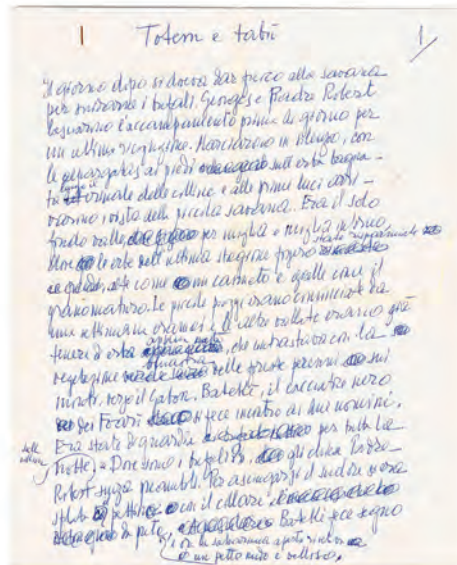 1 Totem e tabù 1
Il giorno dopo si doveva dar fuoco alla savana
per snidarne i bufali. Georges e Padre Robert
lasciarono l'accampamento prima di giorno per
un'ultima ricognizione. Marciarono in silenzio, con
le ai piedi sull'erba bagna-
ta delle colline e alle prime luci arri-
varono in vista della piccola savana. Era il solo
fondo valle per miglia e miglia intorno
dove le erbe dell'ultima stagione fossero state risparmiate
alte come un canneto e gialle come il
grano maturo. Le piccole piogge erano cominciate da
una settimana oramai e le altre vallate erano già
tenere d'erba appena nata, che contrastava con la
vegetazione bluastra delle foreste perenni sui
monti, verso il Gabon. Batekè, il cacciatore nero
dei Fours si fece incontro ai due uomini.
Era stato di guardia per tutta la
notte. - Dove sono i bufali? gli chiese Padre
Robert senza preamboli. Per asciugarsi il sudore si era
il collare
di prete, Batekè fece segno
e con la sahariana aperta
un petto nudo e velloso.